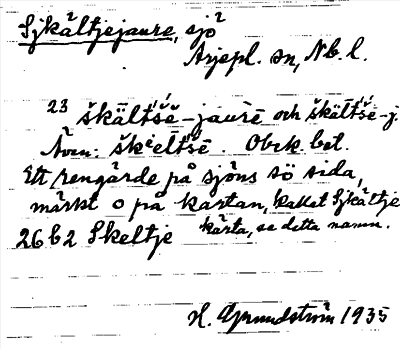 Sjkältjejaure, sjö²
Arjepl. sn, Nb. l.
23 škältšē-jaurē och škēltšē-j.
Även: škieltšē. Obek. bet.
Ett rengärde på sjöns sö sida,
märkt o på kartan, kallat Sjkältje
26 b 2 Skeltje kårta, se detta namn.
H. Grundström 1935